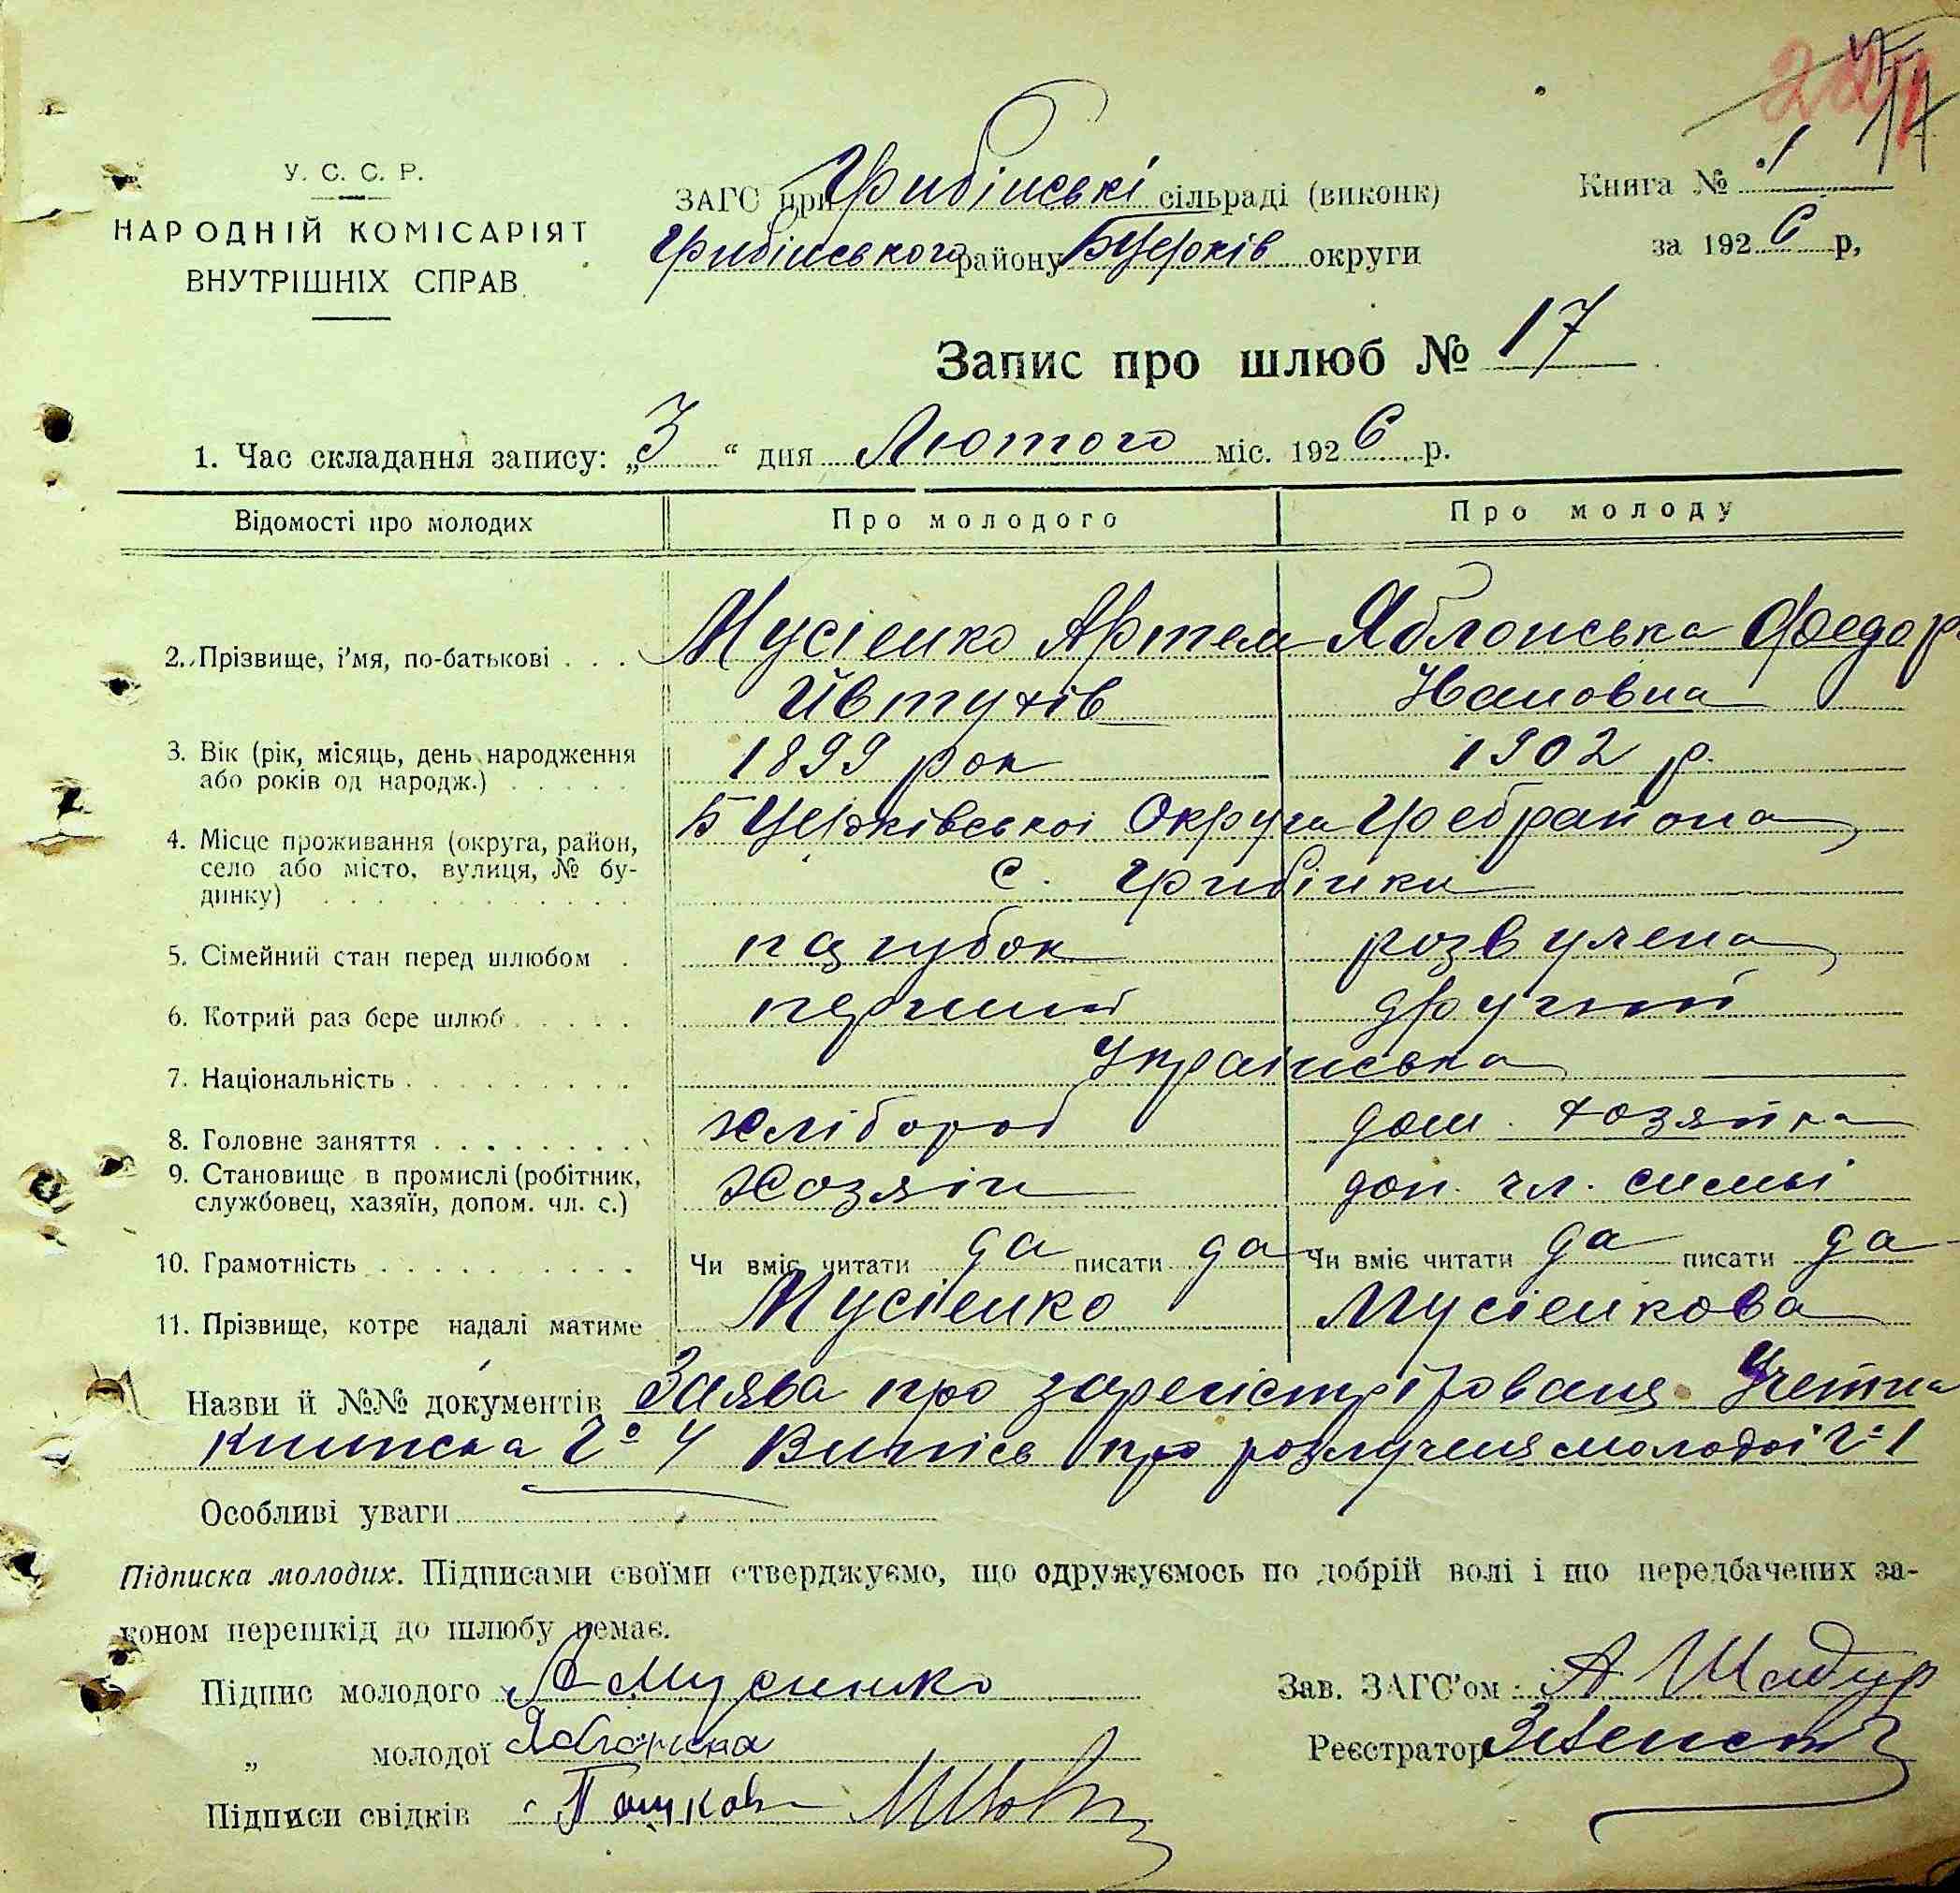 17
221
17
У. С. С. Р.
НАРОДНІЙ КОМІСАРІЯТ
ВНУТРІШНІХ СПРАВ
ЗАГС при Грибінські сільраді (виконк)
Грибінського району БЦерків округи
Книга № 1
за 1926 р,
Запис про шлюб № 17
1. Час складання запису: „3“ дня Лютого міс. 1926 р.
Відомості про молодих Про молодого Про молоду
2. Прізвище, і'мя, по-батькові . . . Мусіенко Артем Яблонська Федор
Йвтухів
3. Вік (рік, місяць, день народження 1899 рок 1902 р.
або років од народж.) . . . . .
4. Місце проживання (округа, район, БЦерківськоі Округи Гребрайона
село або місто, вулиця, № бу- с. Грибінки
динку)
5. Сімейний стан перед шлюбом . парубок розвучена
6. Котрий раз бере шлюб . . . . . перший другий
7. Національність . . . . . . . . . Українська
8. Головне заняття . . . . . . . . хлібороб дом. хозяйка
9. Становище в промислі (робітник, Хозяін доп. чл. сисмьі
службовец, хазяїн, допом. чл. с.)
10. Грамотність . . . . . . . . . Чи вміє читати да писати да Чи вміє читати да писати да
11. Прізвище, котре надалі матиме Мусіенко Мусіенкова
Назви й №№ документів Заява про зарегістріровання Учетна
книжка № 4 Випісь про розлученя молодоі № 1
Особливі уваги
Підписка молодих. Підписами своїми стверджуємо, що одружуємось по добрій волі і що передбачених за-
коном перешкід до шлюбу немає.
Підпис молодого А Мусиенко
Зав. ЗАГС'ом А
„ молодої Яблонска
Реєстратор
Підписи свідків